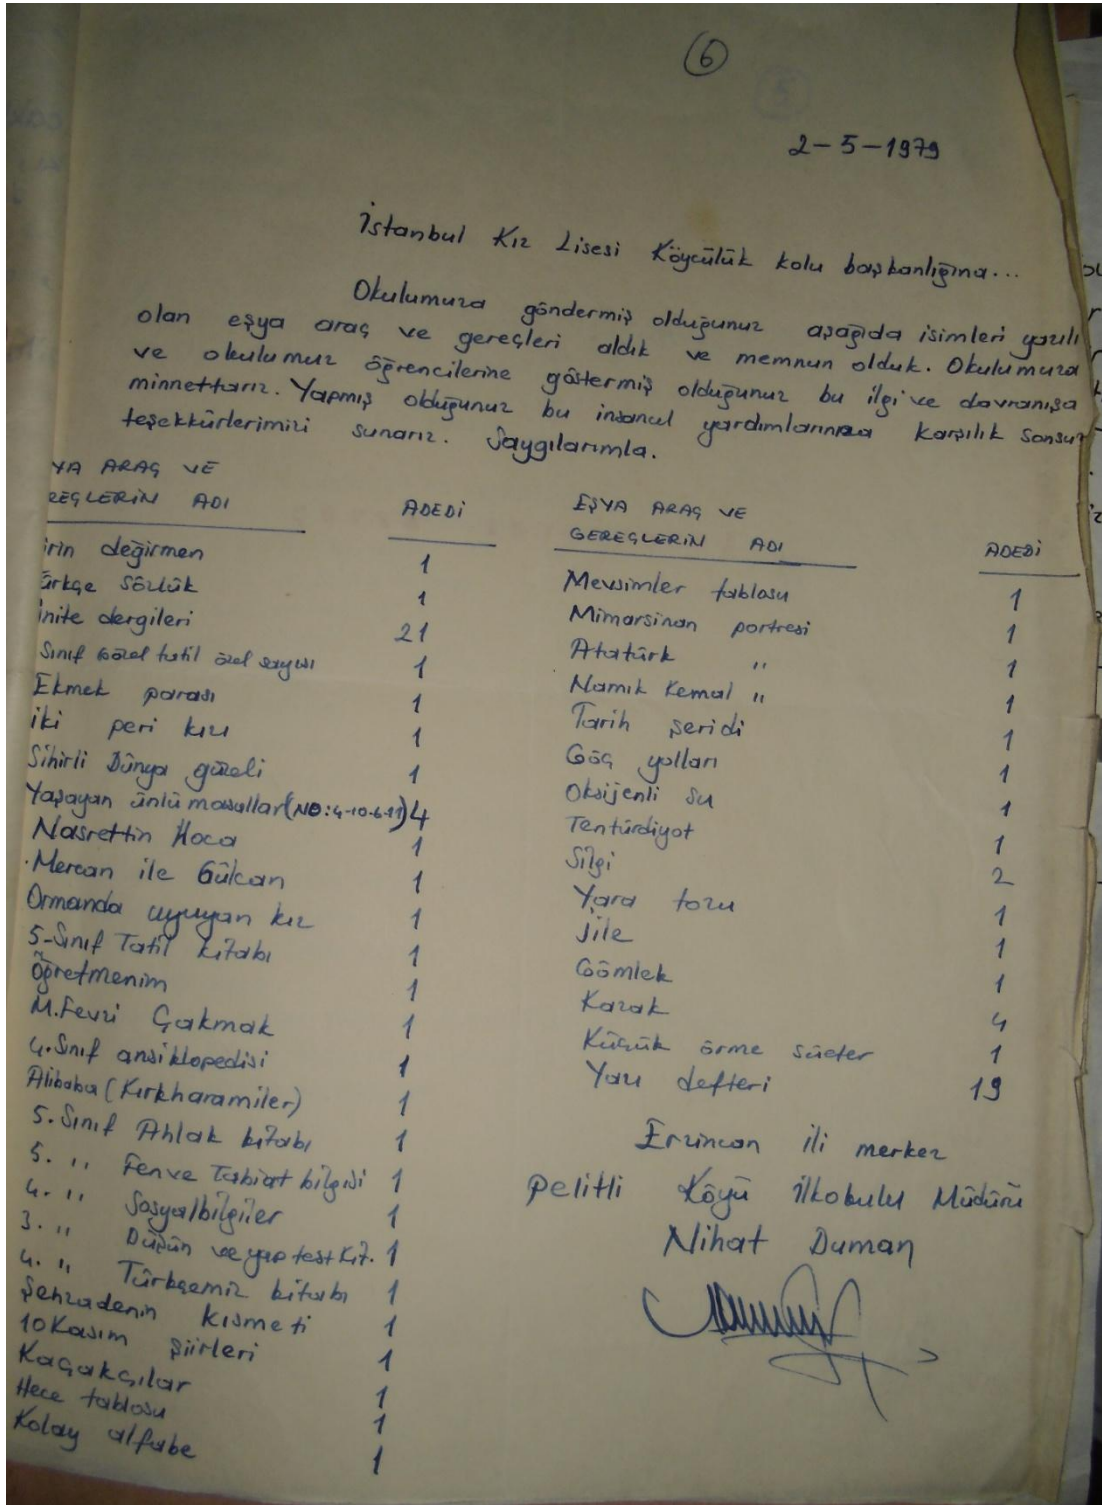 6
5
2-5-1979
İstanbul Kız Lisesi Köycülük kolu başkanlığına...
Okulumuza göndermiş olduğunuz aşağıda isimleri yazılı
olan eşya araç ve gereçleri aldık ve memnun olduk. Okulumuza
ve okulumuz öğrencilerine göstermiş olduğunuz bu ilgi ve davranışa
minnettarız. Yapmış olduğunuz bu insancıl yardımlarınıza karşılık sonsuz
teşekkürlerimizi sunarız. Saygılarımla.
YA ARAÇ VE
REÇLERİN ADI ADEDİ
irin değirmen 1
ürkçe sözlük 1
inite dergileri 21
Sınıf Güzel tatil özel sayısı 1
Ekmek parası 1
İki peri kızı 1
Sihirli Dünya güzeli 1
Yaşayan ünlü masallar (NO:4-10-6-11) 4
Nasrettin Hoca 1
Mercan ile Gülcan 1
Ormanda uyuyan kız 1
5-Sınıf Tatil kitabı 1
Öğretmenim 1
M.Fevzi Çakmak 1
4.Sınıf ansiklopedisi 1
Alibaba (Kırkharamiler) 1
5.Sınıf Ahlak kitabı 1
5. " Fen ve Tabiat bilgisi 1
4. " Sosyalbilgiler 1
3. " Düşün ve yap test kit. 1
4. " Türkçemiz kitabı 1
Şehzadenin kısmeti 1
10 Kasım şiirleri 1
Kaçakçılar 1
Hece tablosu 1
Kolay alfabe 1
EŞYA ARAÇ VE
GEREÇLERİN ADI ADEDİ
Mevsimler tablosu 1
Mimarsinan portresi 1
Atatürk " 1
Namık Kemal " 1
Tarih şeridi 1
Göç yolları 1
Oksijenli su 1
Tentürdiyot 1
Silgi 2
Yara tozu 1
Jile 1
Gömlek 1
Kazak 4
Küçük örme süeter 1
Yazı defteri 19
Erzincan ili merkez
Pelitli Köyü ilkokulu Müdürü
Nihat Duman